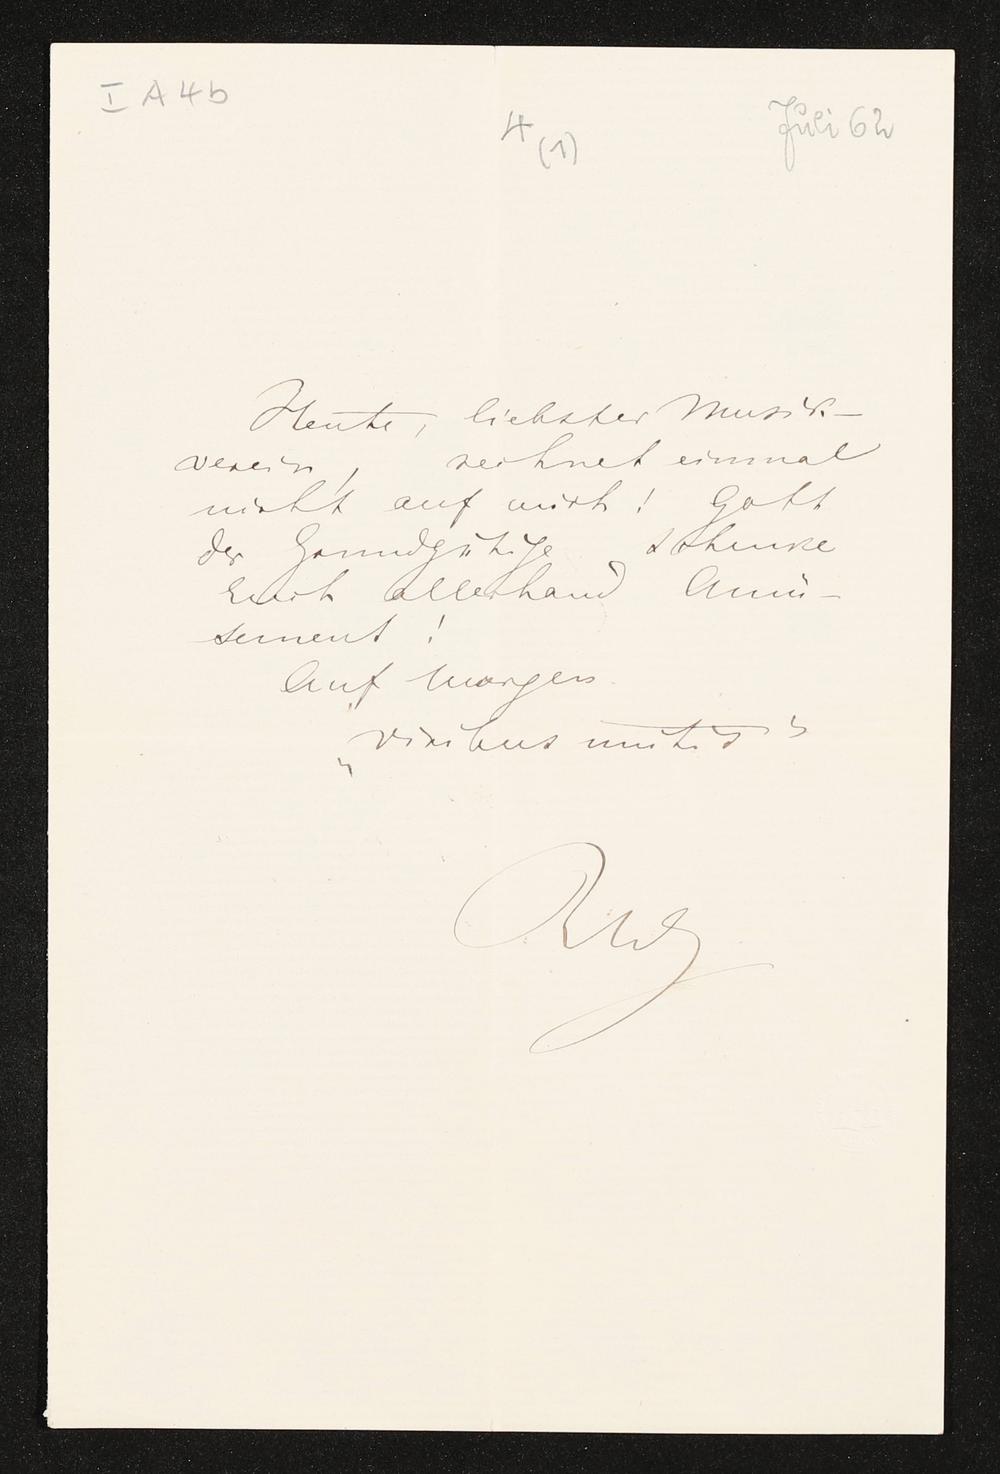 I A 4 b
4 (1)
Juli 62
Heute, liebster Musik-
verein, rechnet einmal
nicht auf mich! Gott
der Grundgütige schenke
Euch allerhand Amü-
sement!
Auf morgen
„viribus unitis“